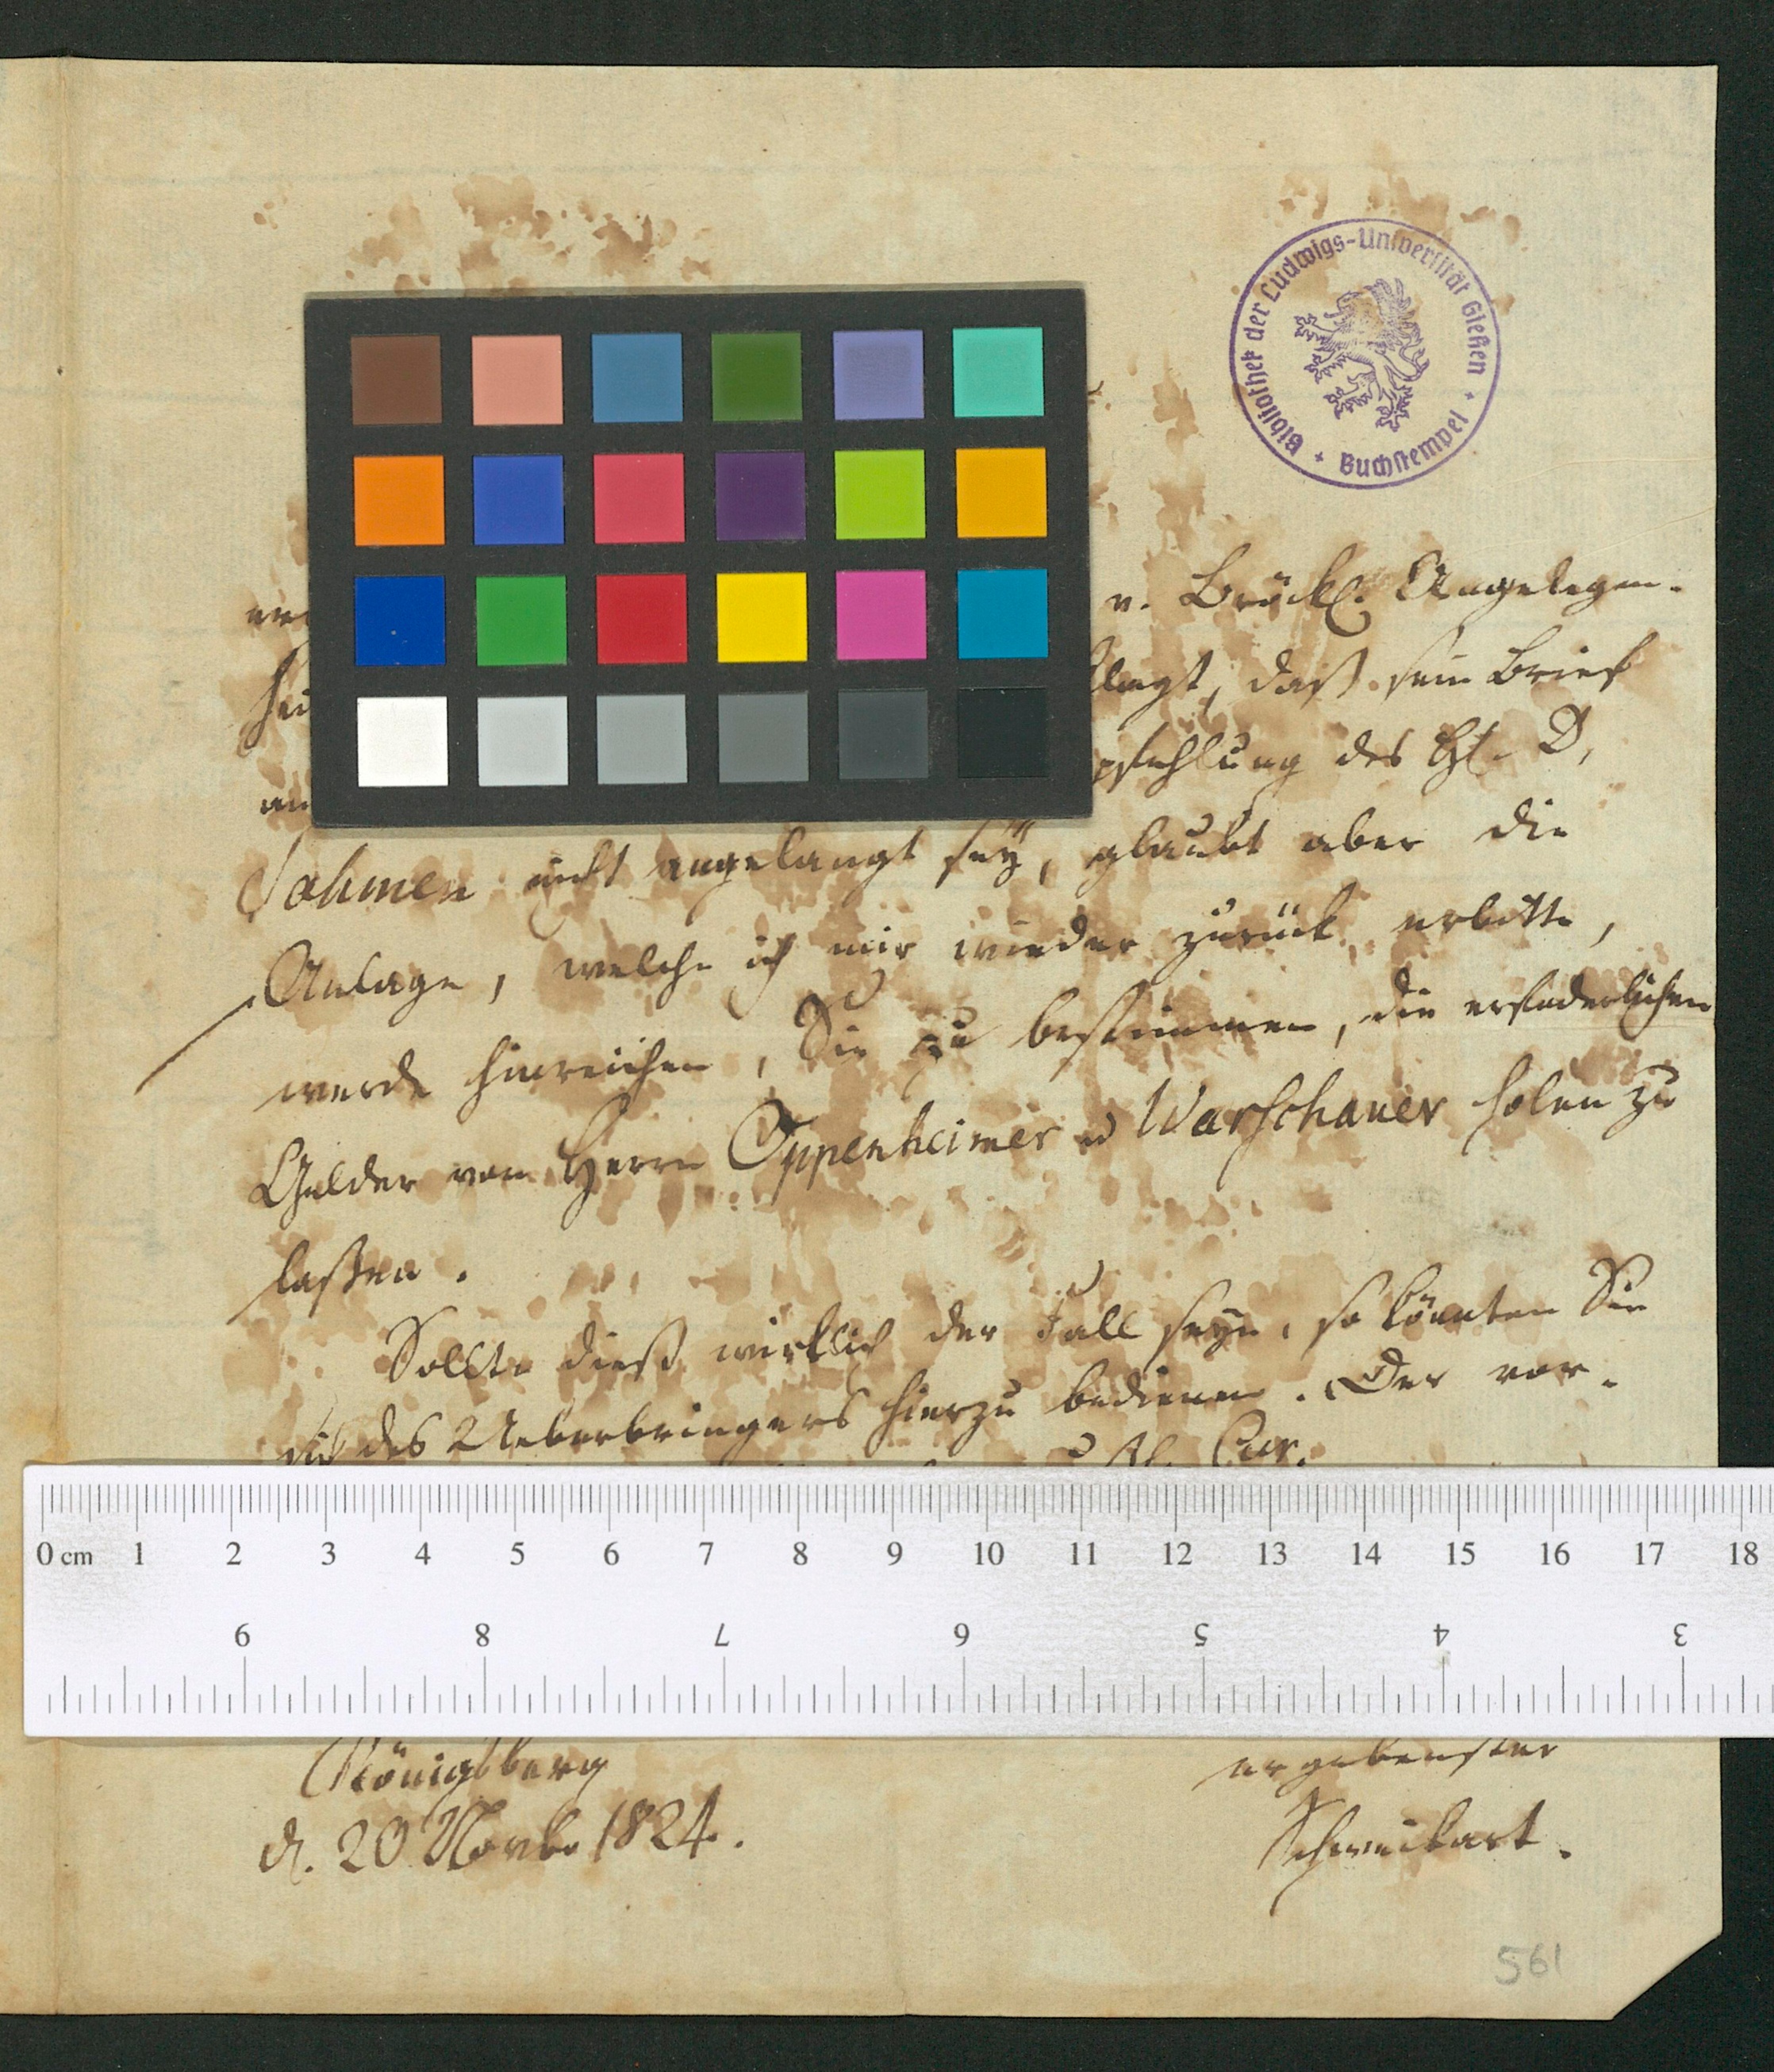 Bibliothek der Ludwigs-Universität Gießen + Buchstempel +
v. Angelegen-
daß sein Brief
pfehlung des D.
Sahmen nicht angelangt sey, glaubt aber die
Anlage, welche ich mir wieder zurück erbitte,
werde hinreichen, Sie zu bestimmen, die erfoderlichen
Gelder von Herrn Oppenheimer u Warschauer holen zu
laßen.
Sollte dieß wirklich der Fall seyn, so könnten Sie
sich des Ueberbringers hierzu bedienen. Der vor-
Cur.
0 cm 1 2 3 4 5 6 7 8 9 10 11 12 13 14 15 16 17 18
9 8 7 6 5 4 3
Königsberg ergebenster
d. 20 Novbr 1824. Schweikart.
561